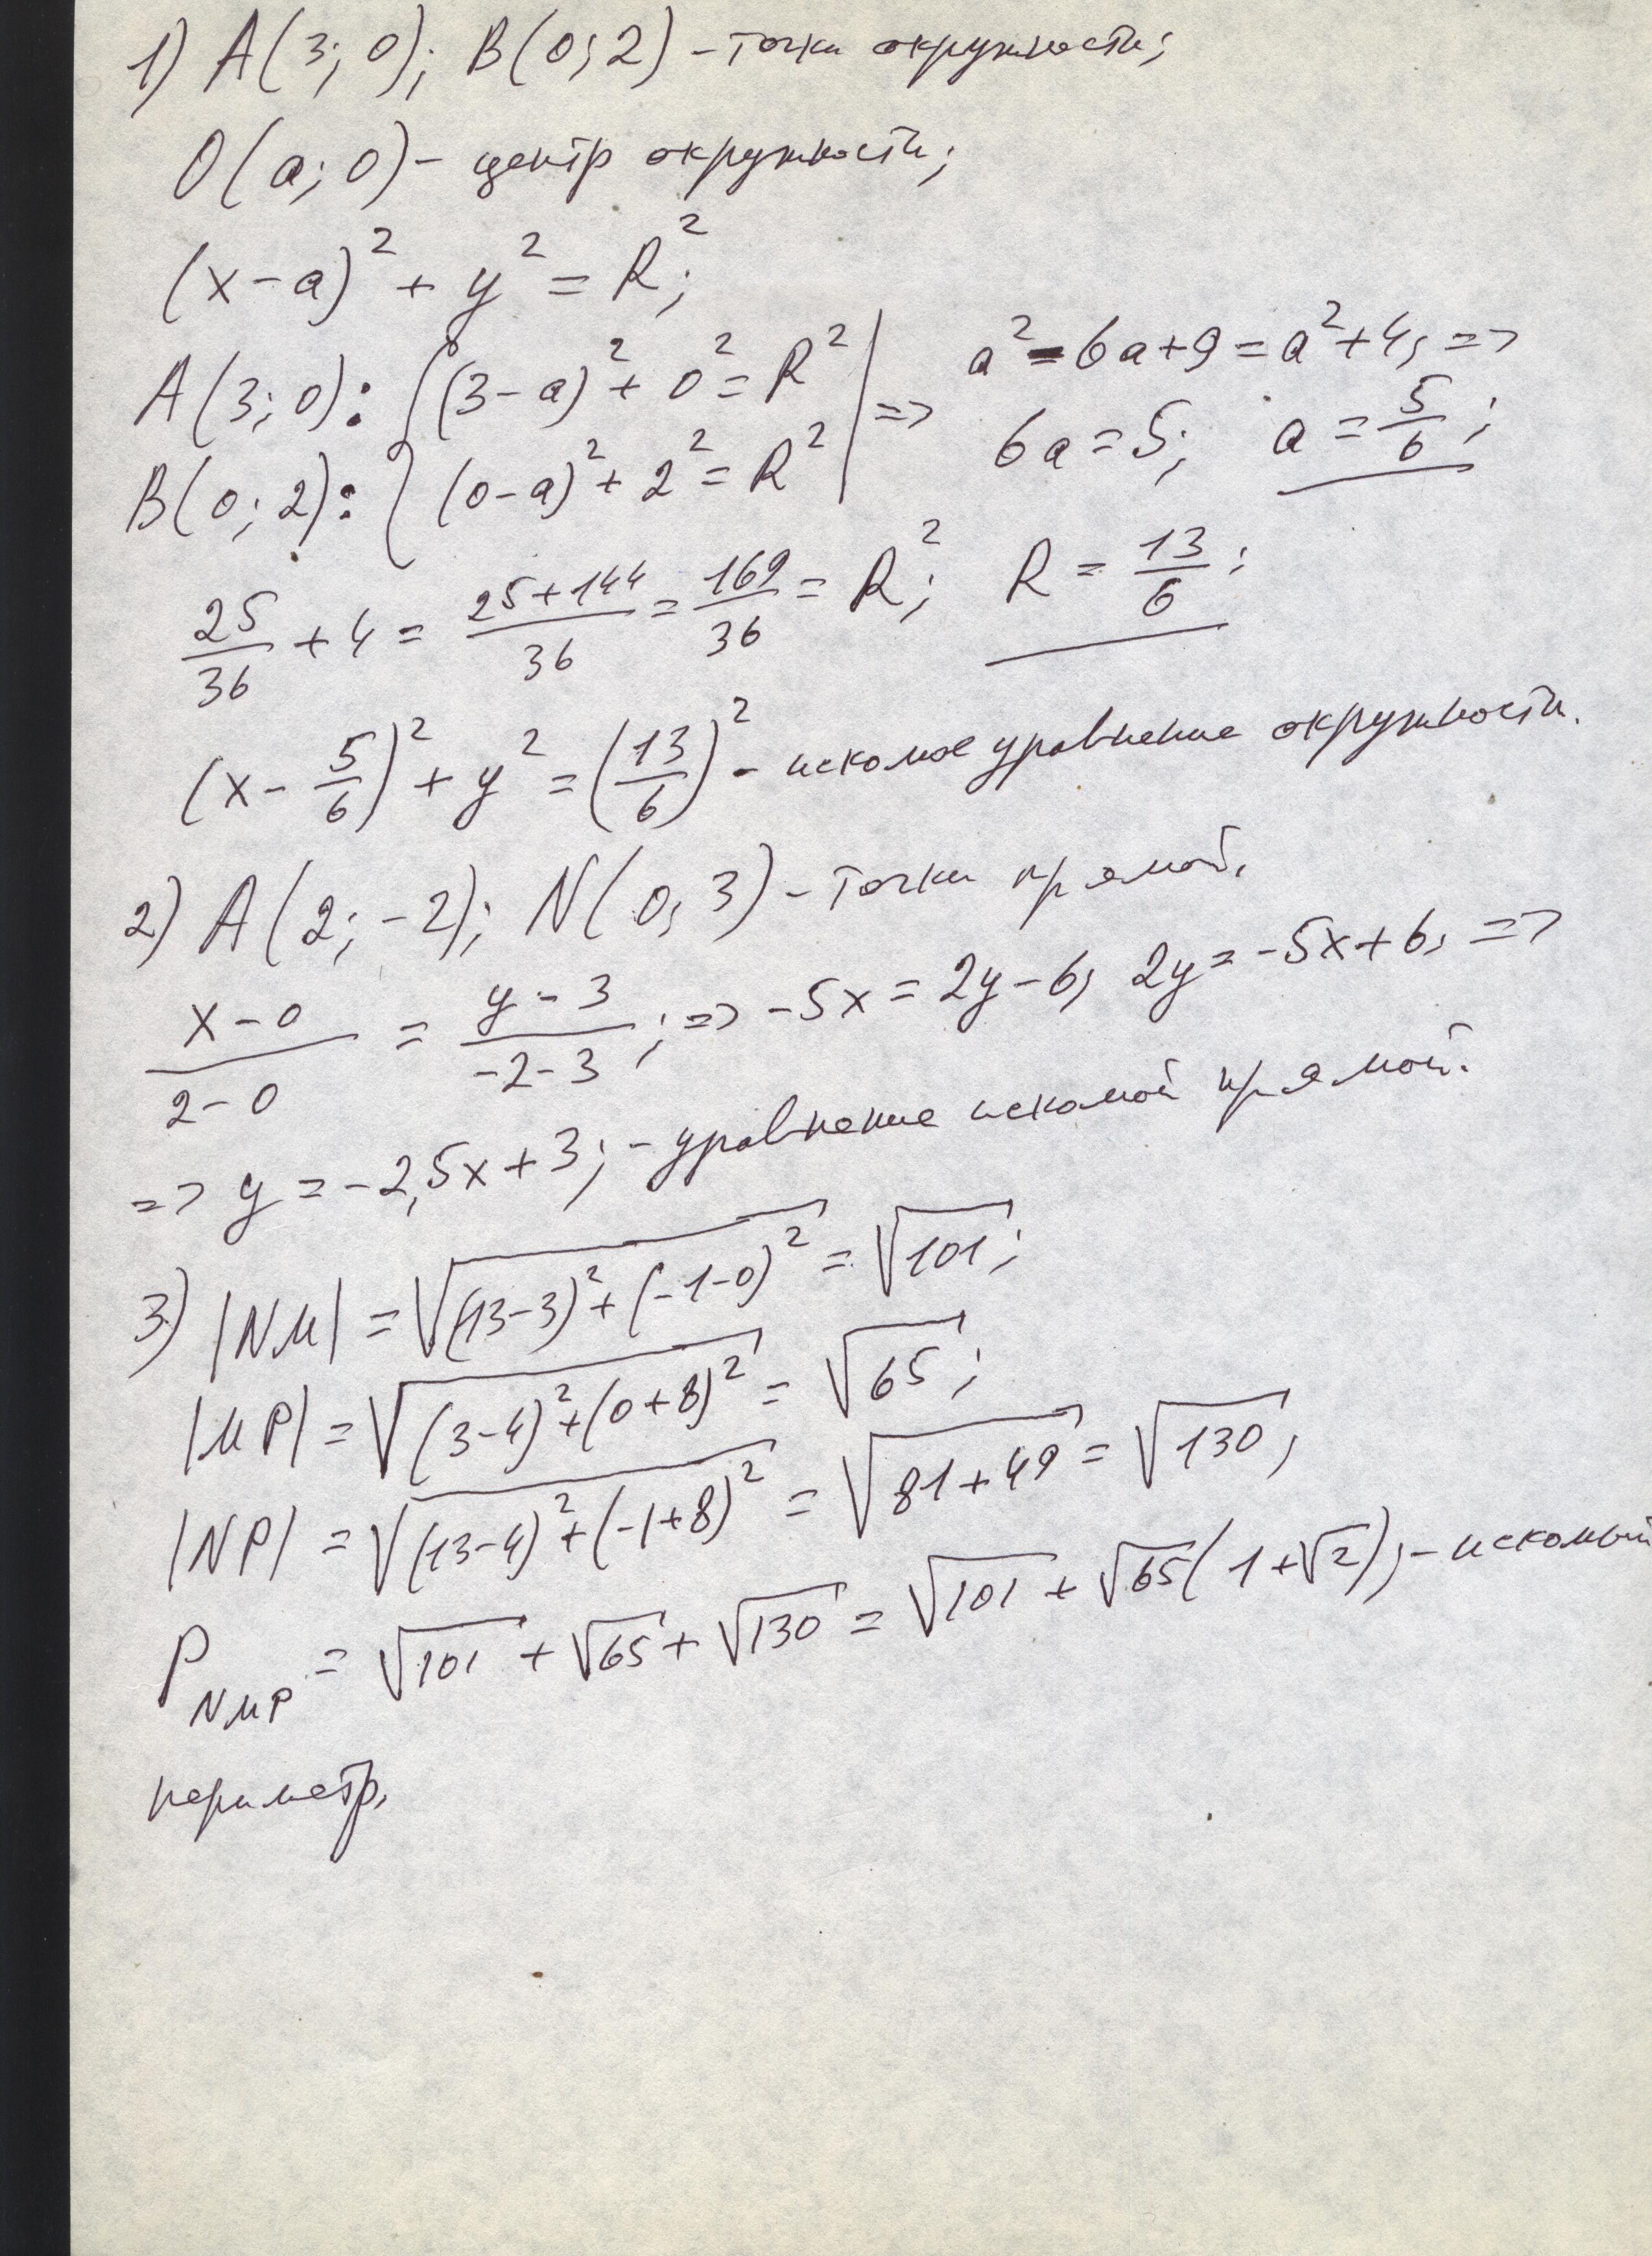 1) A(3; 0); B(0; 2) - точки окружности;
O(a; 0) - центр окружности;
(x-a)² + y² = R²;
A(3; 0): { (3-a)² + 0² = R² | => a² - 6a + 9 = a² + 4, =>
B(0; 2): { (0-a)² + 2² = R² | 6a = 5; a = 5/6;
25/36 + 4 = (25+144)/36 = 169/36 = R²; R = 13/6;
(x - 5/6)² + y² = (13/6)² - искомое уравнение окружности.
2) A(2; -2); N(0, 3) - точки прямой.
(x-0)/(2-0) = (y-3)/(-2-3); => -5x = 2y-6, 2y = -5x+6, =>
=> y = -2,5x + 3; - уравнение искомой прямой.
3) |NM| = √((13-3)² + (-1-0)²) = √101;
|MP| = √((3-4)² + (0+8)²) = √65;
|NP| = √((13-4)² + (-1+8)²) = √(81+49) = √130,
P_NMP = √101 + √65 + √130 = √101 + √65(1+√2), - искомый
периметр.